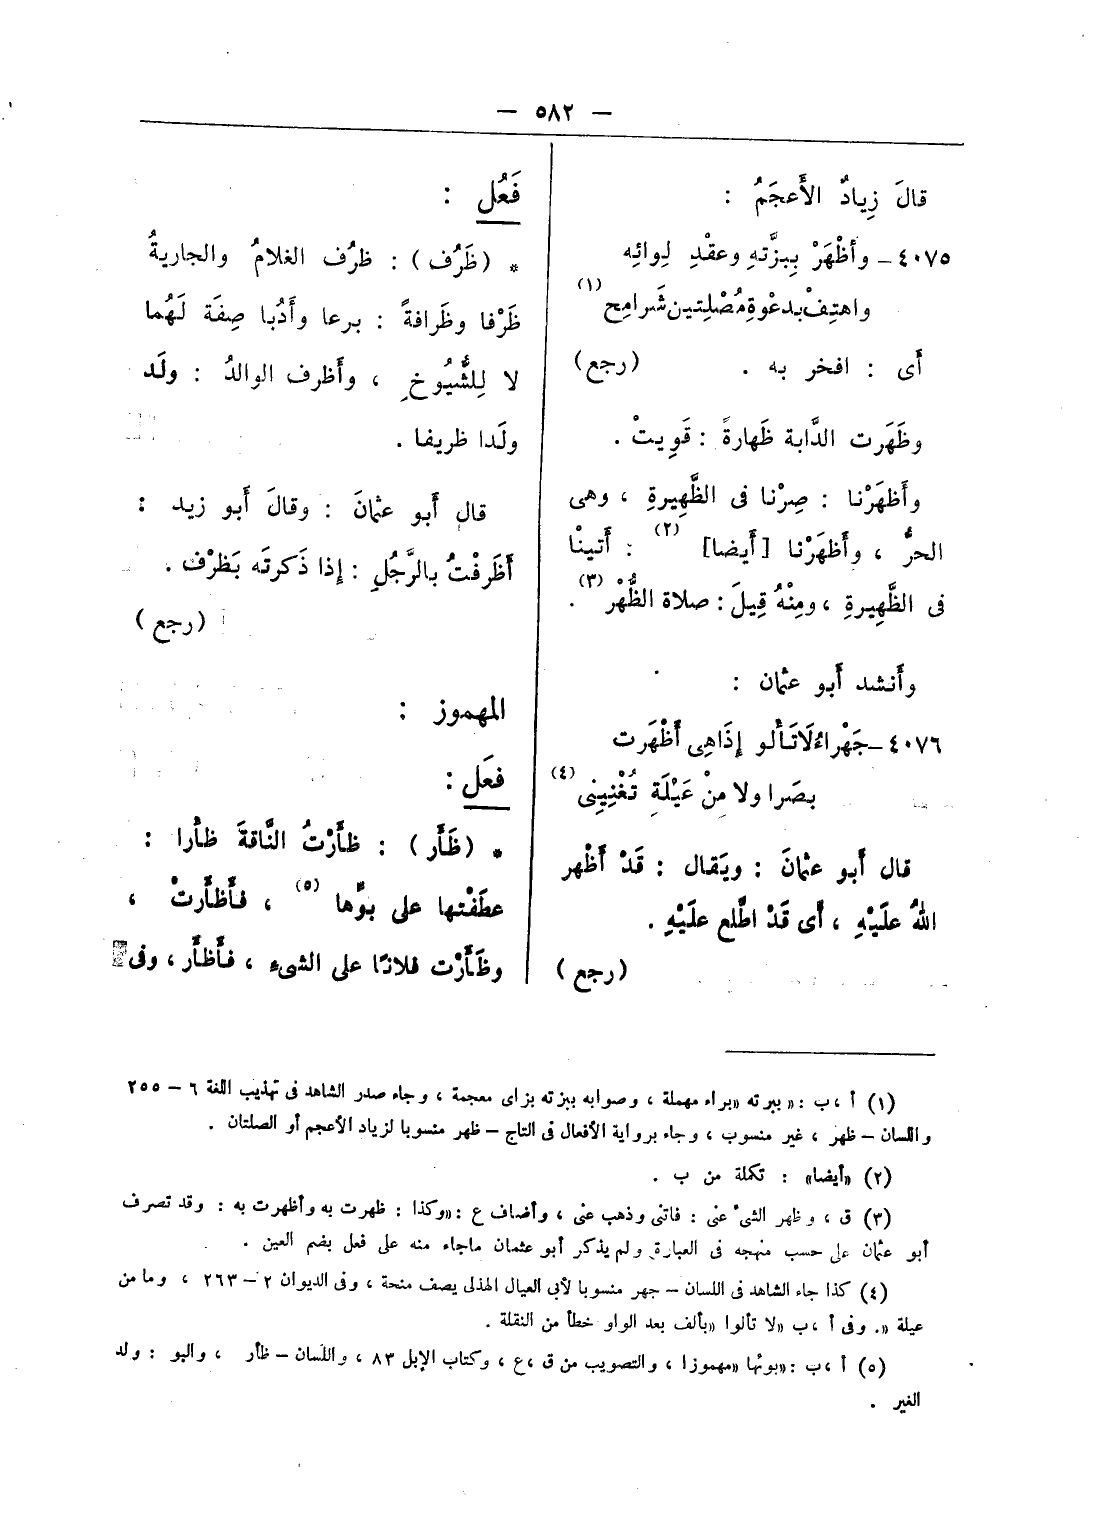 — ٥٨٢ —
قالَ زِيادٌ الأَعجَمُ :
٤٠٧٥ – وأظْهَرْ بِبزَّتهِ وعقْدِ لِوائِه
واهتِفْ بدعْوةِ مُصْلِتين شَرامِح (١)
أَى : افخر به . (رجع)
وظَهَرت الدَّابة ظَهارةً : قَوِيتْ .
وأَظهَرْنا : صِرْنا فى الظَّهِيرةِ ، وهى
الحرُّ ، وأَظهَرْنا [أَيضا] (٢) : أَتينْا
فى الظَّهِيرةِ ، ومِنْهُ قِيلَ : صلاة الظُّهْر (٣) .
وأَنشد أَبو عثمان :
٤٠٧٦ – جَهْراءُ لَا تَأْلو إذَا هِى أَظْهَرت
بصَرا ولا مِنْ عَيْلَةِ تُغْنِينِى (٤)
قال أَبو عثمانَ : ويَقال : قَدْ أَظْهر
اللهُ علَيْهِ ، أَى قَدْ اطَّلع علَيْهِ .
(رجع)
فَعُل :
* (ظَرُف) : ظرُف الغلامُ والجاريةُ
ظَرْفا وظَرافةً : برعا وأَدُبا صِفَة لَهُما
لا لِلشُّيُوخِ ، وأَظرف الوالدُ : ولَد
ولَدا ظريفا .
قال أَبو عثمانَ : وقالَ أَبو زيد :
أَظَرفْتُ بالرَّجُلِ : إذا ذَكرتَه بَظرْف .
(رجع)
المهموز :
فعَل :
* (ظَأَر) : ظأَرْتُ النَّاقةَ ظأْرا :
عطَفْتها على بوِّها (٥) ، فأَظأَرتْ ،
وظَأَرْت فلانًا على الشىء ، فأَظأَر ، وفى
(١) أ ، ب : « ببرته » براء مهملة ، وصوابه ببزته بزاى معجمة ، وجاء صدر الشاهد فى تهذيب اللغة ٦ – ٢٥٥
واللسان – ظهر ، غير منسوب ، وجاء برواية الأفعال فى التاج – ظهر منسوبا لزياد الأعجم أو الصلتان .
(٢) «أيضا» : تكملة من ب .
(٣) ق ، وظهر الشىء عنى : فاتنى وذهب عنى ، وأضاف ع : «وكذا : ظهرت به وأظهرت به : وقد تصرف
أبو عثمان على حسب منهجه فى العبارة ولم يذكر أبو عثمان ماجاء منه على فعل بضم العين .
(٤) كذا جاء الشاهد فى اللسان – جهر منسوبا لأبى العيال الهذلى يصف منحة ، وفى الديوان ٢ – ٢٦٣ ، وما من
عيلة ». وفى أ ، ب «لا تألوا » بألف بعد الواو خطأ من النقلة .
(٥) أ ، ب : «بوئها » مهموزا ، والتصويب من ق ، ع ، وكتاب الإبل ٨٣ ، واللسان – ظأر ، والبو : ولد
الغير .